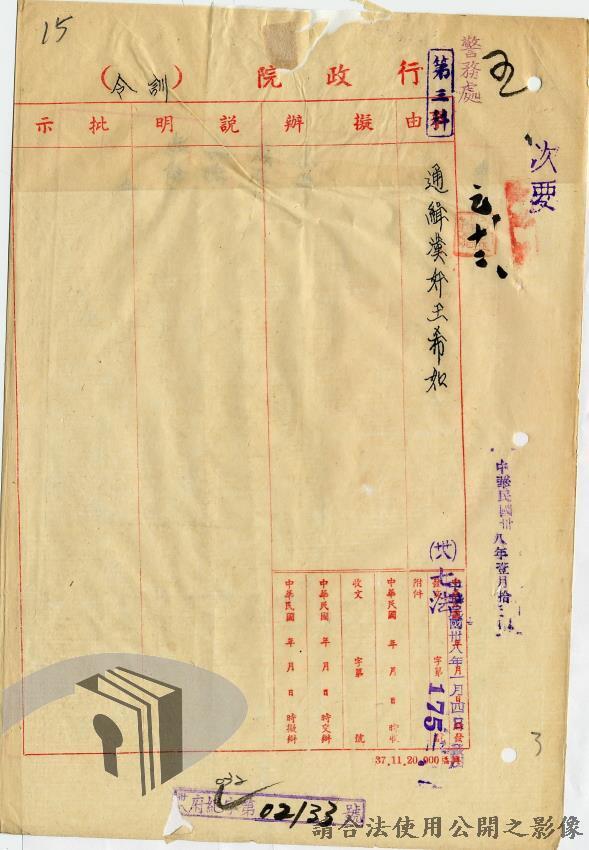 15
行政院（訓令）
第三科
警務處
次要
元、十三、
由
擬辦
說明
批示
通緝漢奸王希如
中華民國卅八年壹月拾三
(卅)七法
175
中華民國卅八年一月四日
附件
中華民國 年 月 日 時收
收文 字第 號
中華民國 年 月 日 時交辦
中華民國 年 月 日 時擬辦
37.11.20.900
3
第02133號
請合法使用公開之影像